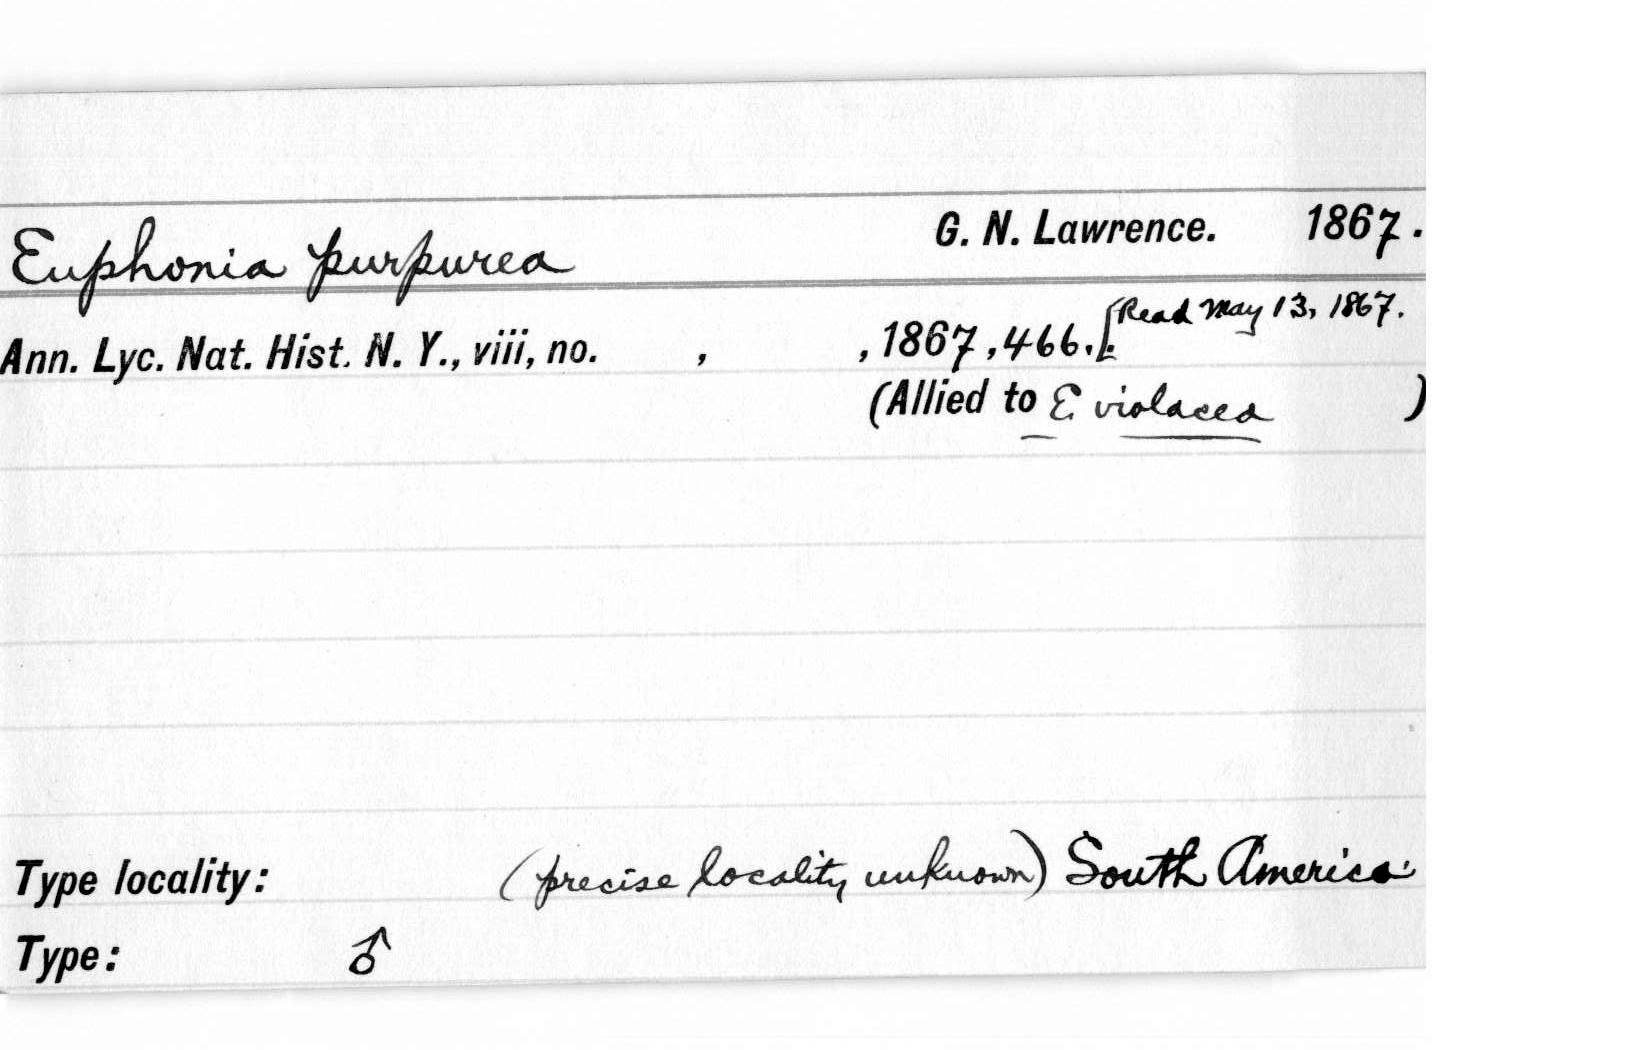 Euphonia purpurea G. N. Lawrence. 1867.
Ann. Lyc. Nat. Hist. N. Y., viii, no. , , 1867, 466. [Read May 13, 1867.
(Allied to E. violacea )
Type locality: (precise locality unknown) South America.
Type: ♂